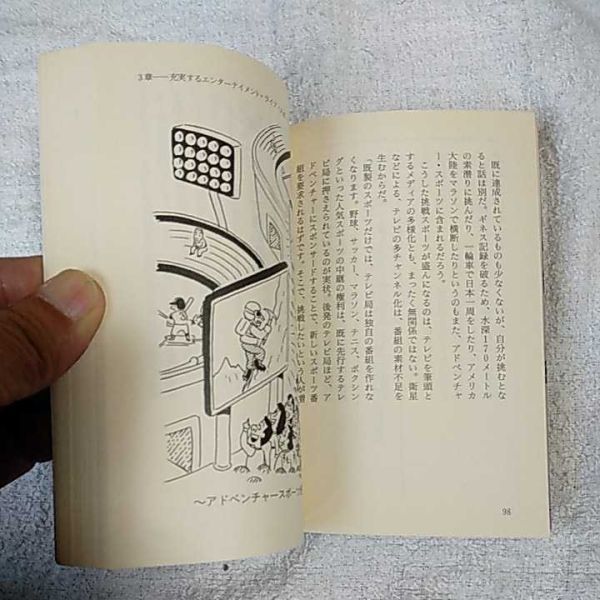 既に達成されているものも少なくないが、自分が挑むとな
ると話は別だ。ギネス記録を破るため、水深170メートル
の素潜りに挑んだり、一輪車で日本一周をしたり、アメリカ
大陸をマラソンで横断したりというのもまた、アドベンチャ
ー・スポーツに含まれるだろう。
こうした挑戦スポーツが盛んになるのは、テレビを筆頭と
するメディアの多様化とも、まったく無関係ではない。衛星
などによる、テレビの多チャンネル化は、番組の素材不足を
生むからだ。
「既製のスポーツだけでは、テレビ局は独自の番組を作れな
くなります。野球、サッカー、マラソン、テニス、ボクシン
グといった人気スポーツの中継の権利は、既に先行するテレ
ビ局に押さえられているのが実状。後発のテレビ局ほど、ア
ドベンチャーにスポンサードすることで、新しいスポーツ番
組を要求されるはずです。そこで、挑戦したいという人が増
98
3章——充実するエンターテイメント・ライフ
〜アドベンチャースポーツ